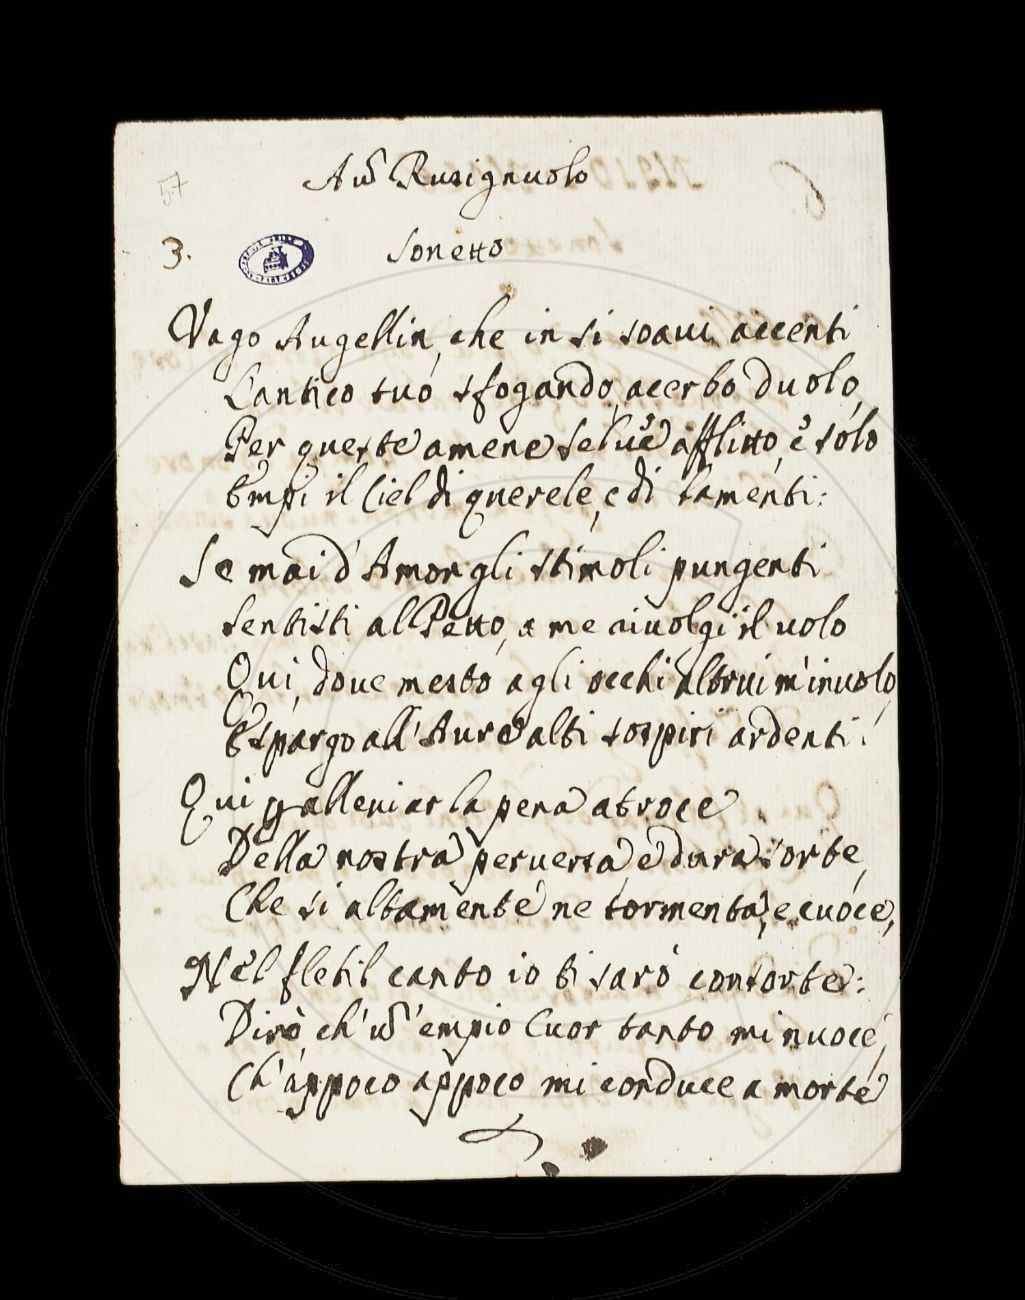 57
Ad Rusignuolo
3.
Sonetto
Vago Augellin, che in si soaui accenti
L'antico tuo sfogando acerbo duolo,
Per queste amene Selue afflitto, e solo
Empi il Ciel di querele, e di lamenti:
Se mai d'Amor gli stimoli pungenti
Sentisti al Petto, a me riuolgi il uolo
Qui, doue mesto agli occhi altrui m'inuolo,
E spargo all'Aure alti sospiri ardenti.
Qui p alleuiar la pena atroce
Della nostra peruersa, e dura sorte,
Che si altamente ne tormenta, e cuoce,
Nel flebil canto io ti sarò consorte:
Dirò ch'ud'empio Cuor tanto mi nuoce,
Ch'appoco appoco mi conduce a morte